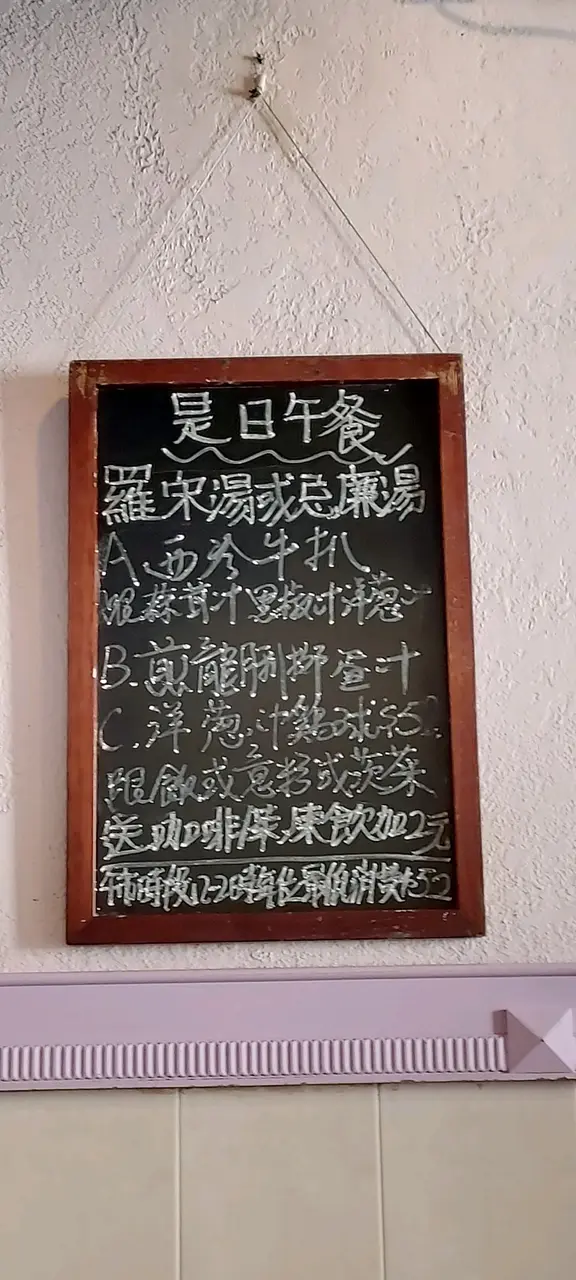 是日午餐
羅宋湯或忌廉湯
A 西冷牛扒
跟蘑茸汁黑椒汁洋葱汁
B.煎龍脷班蛋汁
C.洋葱汁鷄球
跟飯或意粉或炎菜
送咖啡/茶.凍飲加2元
市時段12-2時每位最低消費$52